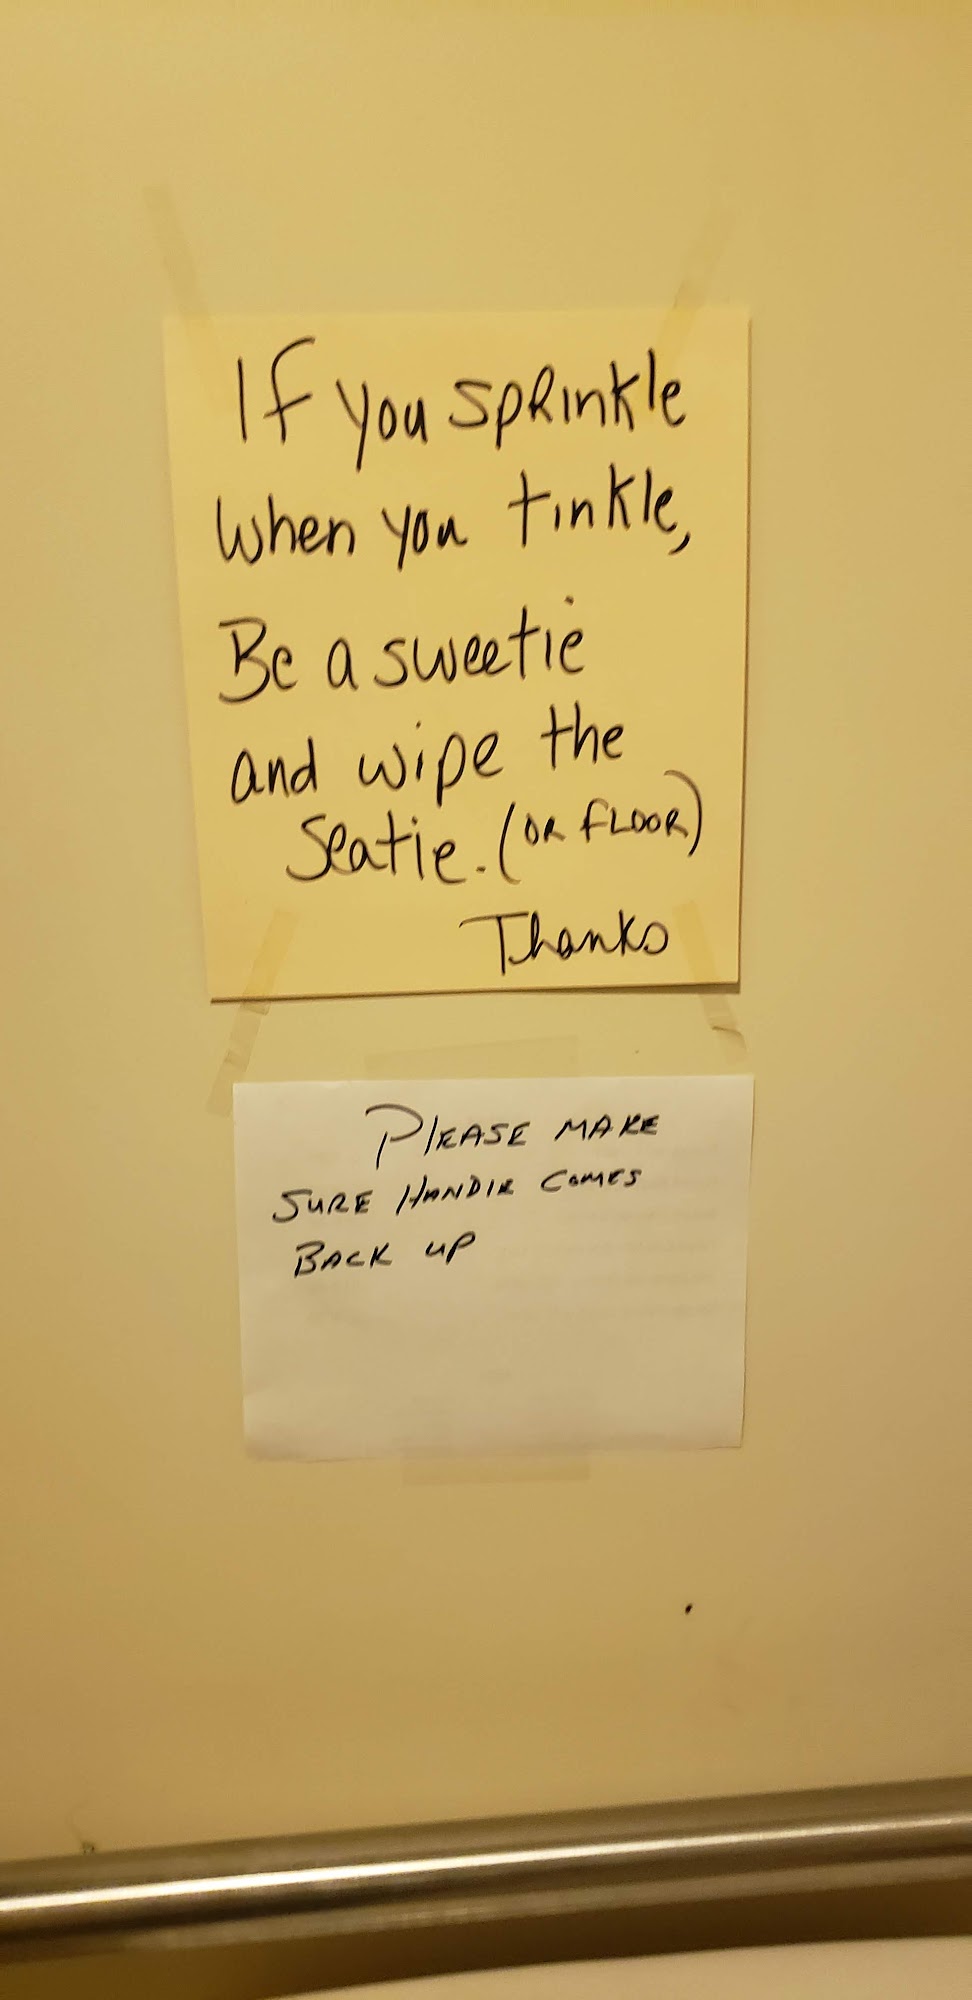 If you sprinkle
when you tinkle,
Be a sweetie
and wipe the
Seatie. (OR FLOOR)
Thanks
PLEASE MAKE
SURE HANDLE COMES
BACK UP